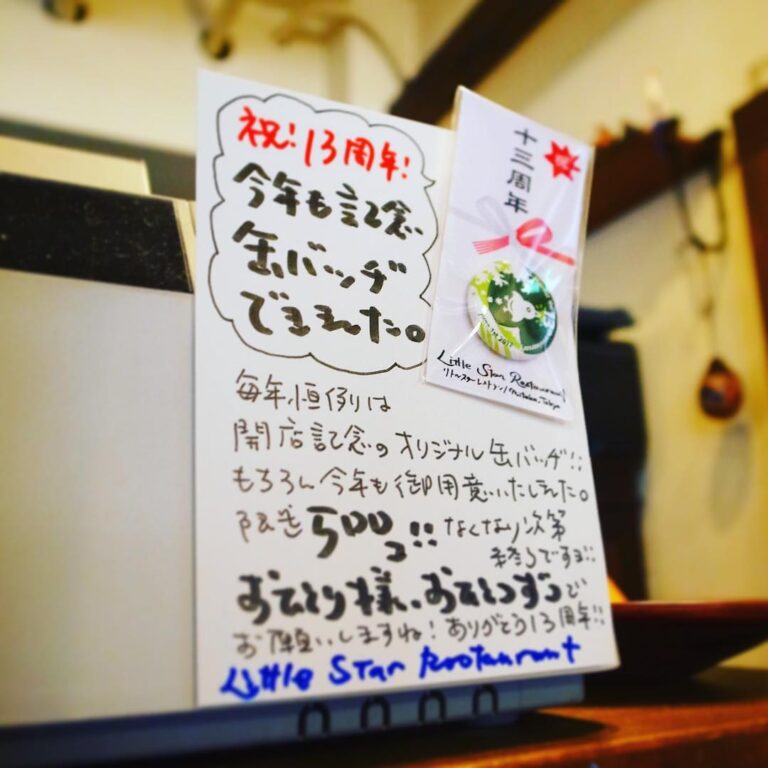 祝!13周年!
今年も記念
缶バッヂ
できました。
十三周年
祝
Little Star Restaurant
リトルスターレストラン/Mitaka,Tokyo
毎年恒例は
開店記念のオリジナル缶バッヂ!!
もちろん今年も御用意いたしました。
限定500コ!!なくなり次第
終了ですョ!!
おひとり様、おひとつずつで
お願いしますね!ありがとう13周年!!
Little Star Restaurant